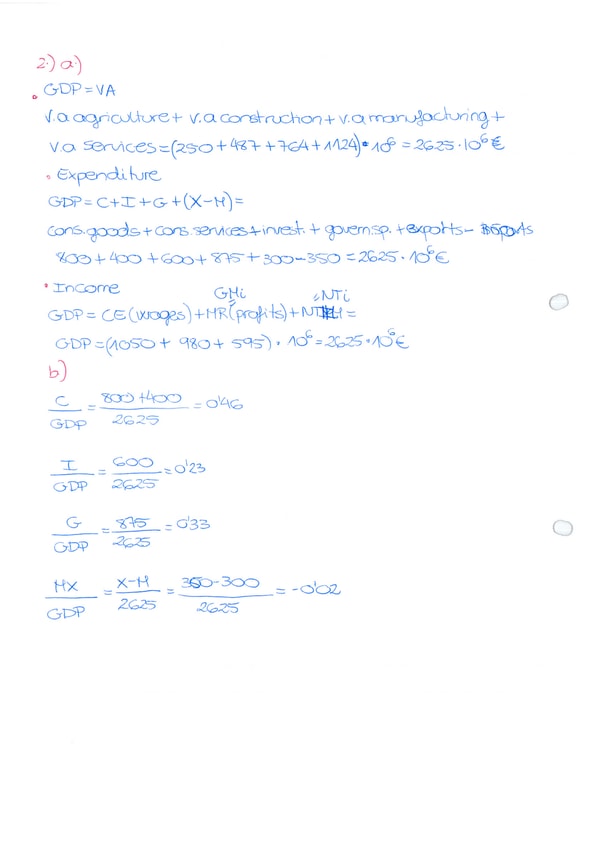 2.) a.)
• GDP = VA
V.a agriculture + v.a construction + v.a manufacturing +
v.a services = (250 + 487 + 764 + 1124) • 10⁶ = 2625 · 10⁶ €
• Expenditure
GDP = C + I + G + (X - M) =
cons. goods + cons. services + invest. + govern sp. + exports - imports
800 + 400 + 600 + 875 + 300 - 350 = 2625 · 10⁶ €
• Income
GMi = NTi
GDP = CE (wages) + MR (profits) + =
GDP = (1050 + 980 + 595) · 10⁶ = 2625 · 10⁶ €
b)
C/GDP = 800 + 400/2625 = 0'46
I/GDP = 600/2625 = 0'23
G/GDP = 875/2625 = 0'33
MX/GDP = X-M/2625 = 350-300/2625 = -0'02